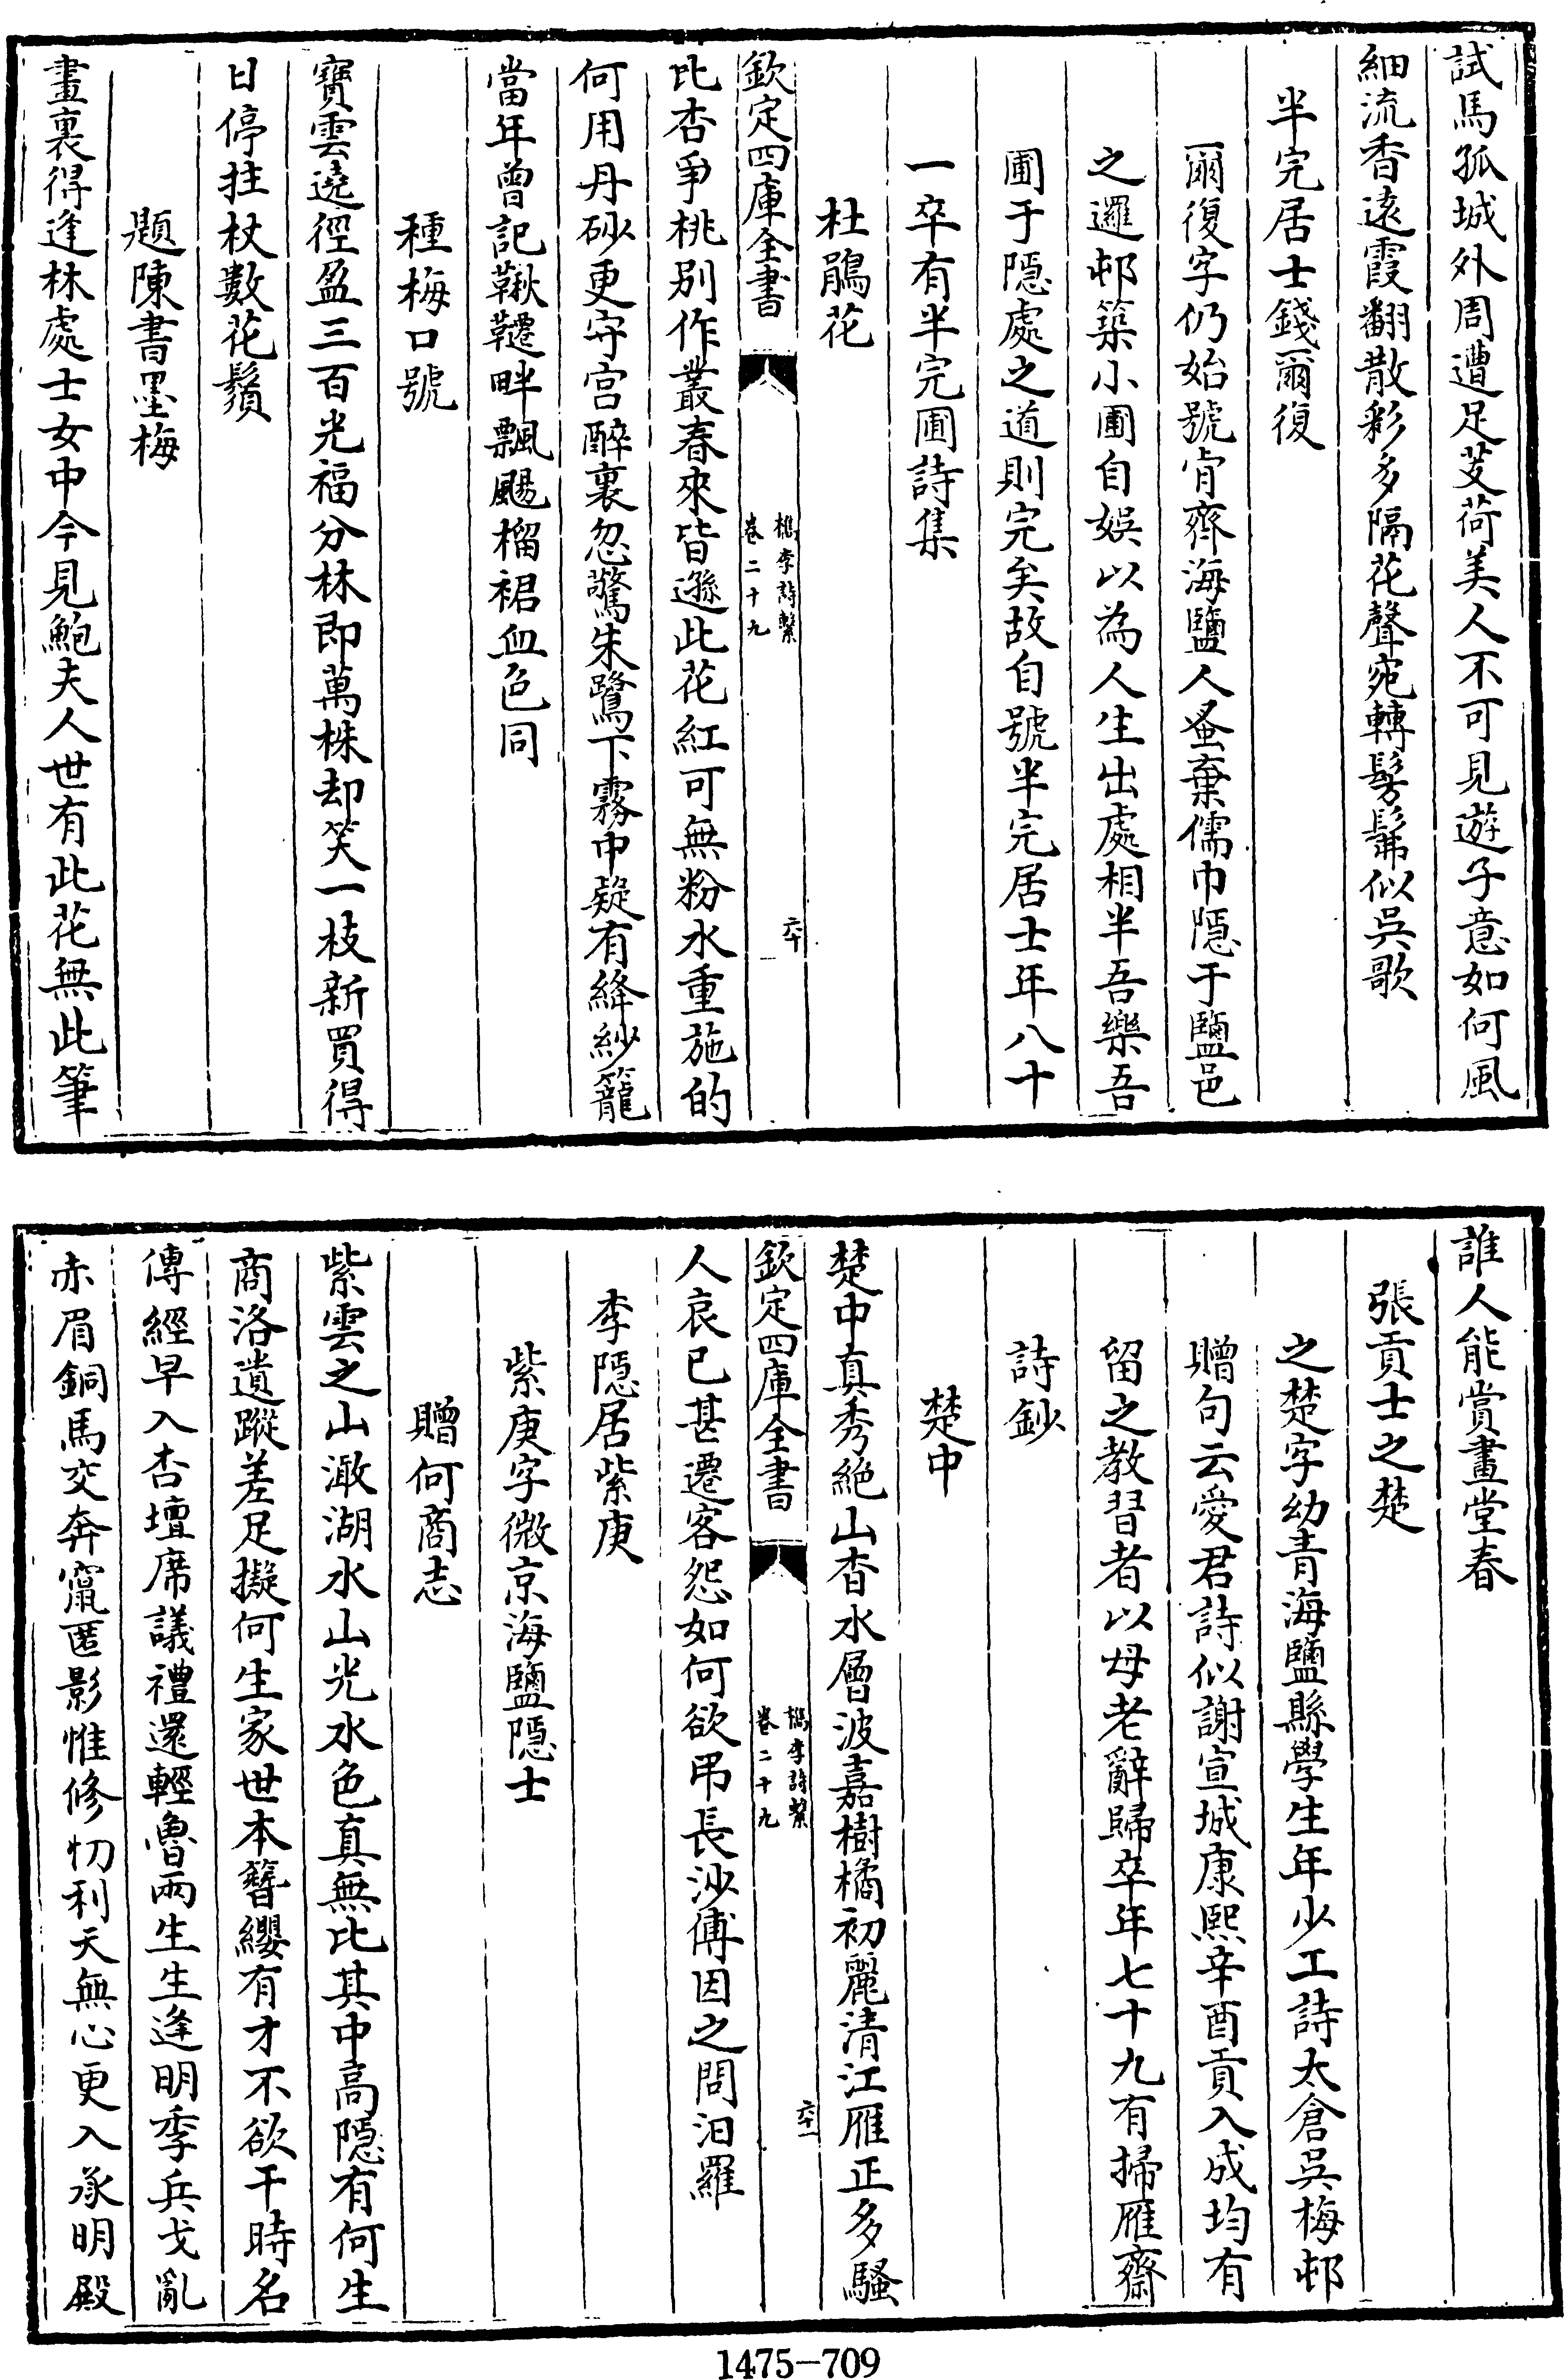 試馬孤城外周遭足芰荷美人不可見遊子意如何風
細流香遠霞翻散彩多隔花聲宛轉髣髴似吳歌
半完居士錢爾復
爾復字仍始號肯齋海鹽人蚤棄儒巾隱于鹽邑
之邏邨築小圃自娛以為人生出處相半吾樂吾
圃于隱處之道則完矣故自號半完居士年八十
一卒有半完圃詩集
杜鵑花
欽定四庫全書
檇李詩繫
卷二十九
六十
比杏爭桃別作叢春來皆遜此花紅可無粉水重施的
何用丹砂更守宮醉裏忽驚朱鷺下霧中疑有絳紗籠
當年曾記鞦韆畔飄颺榴裙血色同
種梅口號
寶雲遶徑盈三百光福分林即萬株却笑一枝新買得
日停拄杖數花鬚
題陳書墨梅
畫裏得逢林處士女中今見鮑夫人世有此花無此筆
誰人能賞畫堂春
張貢士之楚
之楚字幼青海鹽縣學生年少工詩太倉吳梅邨
贈句云愛君詩似謝宣城康熙辛酉貢入成均有
留之教習者以母老辭歸卒年七十九有掃雁齋
詩鈔
楚中
楚中真秀絕山杳水層波嘉樹橘初麗清江雁正多騷
欽定四庫全書
檇李詩繫
卷二十九
六十一
人哀已甚遷客怨如何欲弔長沙傅因之問汨羅
李隱居紫庚
紫庚字微京海鹽隱士
贈何商志
紫雲之山澉湖水山光水色真無比其中高隱有何生
商洛遺蹤差足擬何生家世本簪纓有才不欲干時名
傳經早入杏壇席議禮還輕魯兩生生逢明季兵戈亂
赤眉銅馬交奔竄匿影惟修忉利天無心更入承明殿
1475-709